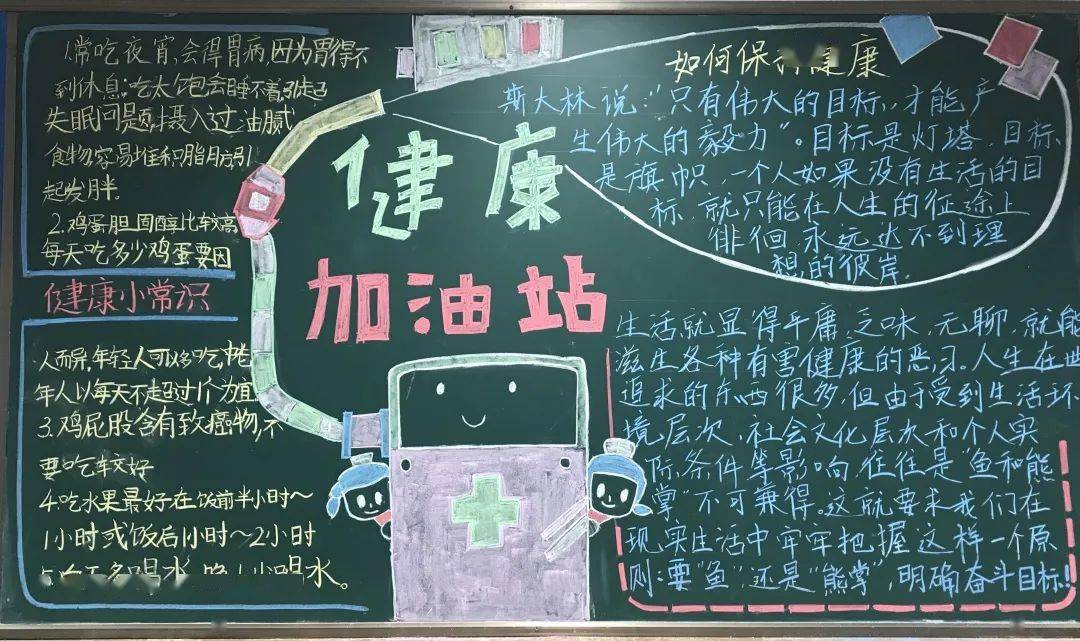 1.常吃夜宵,会得胃病,因为胃得不
到休息;吃太饱会睡不着,引起
失眠问题,摄入过油腻
食物容易堆积脂肪,引
起发胖.
2.鸡蛋胆固醇比较高
每天吃多少鸡蛋要因
健康小常识
人而异,年轻人可以多吃,老
年人以每天不走超过1个为值
3.鸡屁股含有致癌物,不
要吃较好
4.吃水果最好在饭前半小时~
1小时或饭后1小时~2小时
多喝水,晚上少喝水。
健康
加油站
如何保持健康
斯大林说:"只有伟大的目标,才能产
生伟大的毅力"。目标是灯塔,目标
是旗帜,一个人如果没有生活的目
标,就只能在人生的征途上
徘徊,永远达不到理
想的彼岸.
生活就显得平庸,乏味,无聊,就能
滋生各种有害健康的恶习.人生在世
追求的东西很多,但由于受到生活环
境层次,社会文化层次和个人实
际条件等影响,往往是"鱼和熊
掌"不可兼得。这就要求我们在
现实生活中牢牢把握这样一个原
则:要"鱼"还是"熊掌",明确奋斗目标!